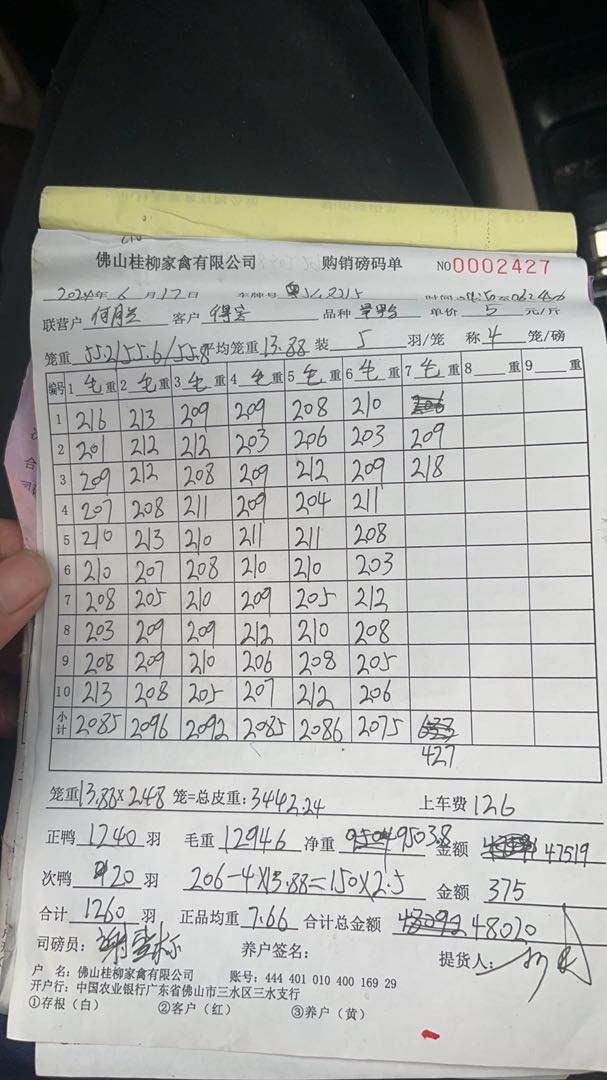 佛山桂柳家禽有限公司 购销磅码单 NO0002427
2024年6月17日 车牌号 时间
联营户 客户 品种 单价 5 元/斤
笼重 55.2/55.6/55.8 平均笼重 13.88 装 5 羽/笼 称 4 笼/磅
编号 1 毛 重 2 毛 重 3 毛 重 4 毛 重 5 毛 重 6 毛 重 7 毛 重 8 重 9 重
1 216 213 209 209 208 210 206
2 201 212 212 203 206 203 209
3 209 212 208 209 212 209 218
4 207 208 211 209 204 211
5 210 213 210 211 211 208
6 210 207 208 210 210 203
7 208 205 210 209 205 212
8 203 209 209 212 210 208
9 208 209 210 206 208 205
10 213 208 205 207 212 206
小计 2085 2096 2092 2085 2086 2075
427
笼重 13.88×248 笼=总皮重: 3442.24 上车费 126
正鸭 1240 羽 毛重 12946 净重 9503.8 金额 47519
次鸭 20 羽 206-4×13.88=150×2.5 金额 375
合计 1260 羽 正品均重 7.66 合计总金额 48020
司磅员: 养户签名: 提货人:
户 名: 佛山桂柳家禽有限公司 账号: 444 401 010 400 169 29
开户行: 中国农业银行广东省佛山市三水区三水支行
①存根（白） ②客户（红） ③养户（黄）